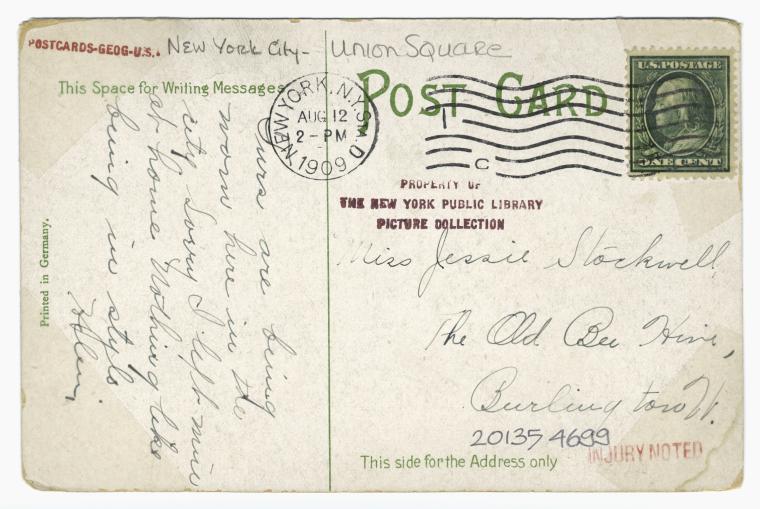 POSTCARDS-GEOG-U.S..
New York City - Union Square
This Space for Writing Messages
POST CARD
U.S. POSTAGE
ONE CENT
NEW YORK, N.Y. STA. D
AUG 12
2-PM
1909
C
PROPERTY OF
THE NEW YORK PUBLIC LIBRARY
PICTURE COLLECTION
Furs are being
worn here in the
city Sorry I left mine
at home Nothing like
being in style
Helen.
Printed in Germany.
Miss Jessie Stockwell
The Old Bee Hive,
Burlington Vt.
20135 4699
INJURY NOTED
This side for the Address only